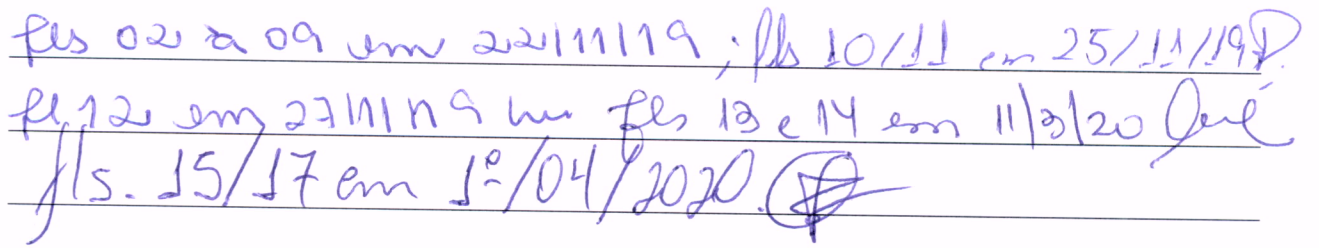 fls 02 a 09 em 22/11/19 ; fls 10/11 em 25/11/19
fl. 12 em 27/11/19 fls 13 e 14 em 11/3/20
fls. 15/17 em 1º/04/2020.